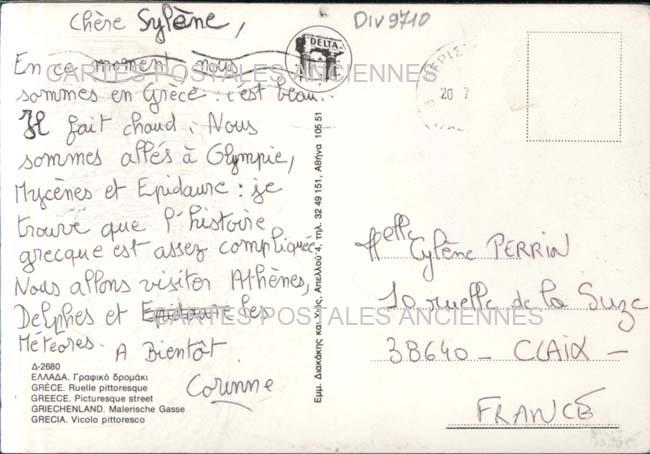 Chère Sylène,
En ce moment nous
sommes en Grèce : c'est beau.
Il fait chaud. Nous
sommes allés à Olympie,
Mycènes et Epidaure : je
trouve que l'histoire
grecque est assez compliquée.
Nous allons visiter Athènes,
Delphes et Epidaure les
Météores. A Bientôt
Corinne
Δ-2680
ΕΛΛΑΔΑ. Γραφικό δρομάκι
GRÈCE. Ruelle pittoresque
GREECE. Picturesque street
GRIECHENLAND. Malerische Gasse
GRECIA. Vicolo pittoresco
DELTA
Εμμ. Διακάκης και Υιός, Απελλού 4, τηλ. 32 49 151, Αθήνα 105 51
Div 9710
ΠΕΡΙΣ
20 7
Melle Cylène PERRIN
10 ruelle de la Suze
38640 - CLAIX -
FRANCE
CARTES POSTALES ANCIENNES
CARTES POSTALES ANCIENNES